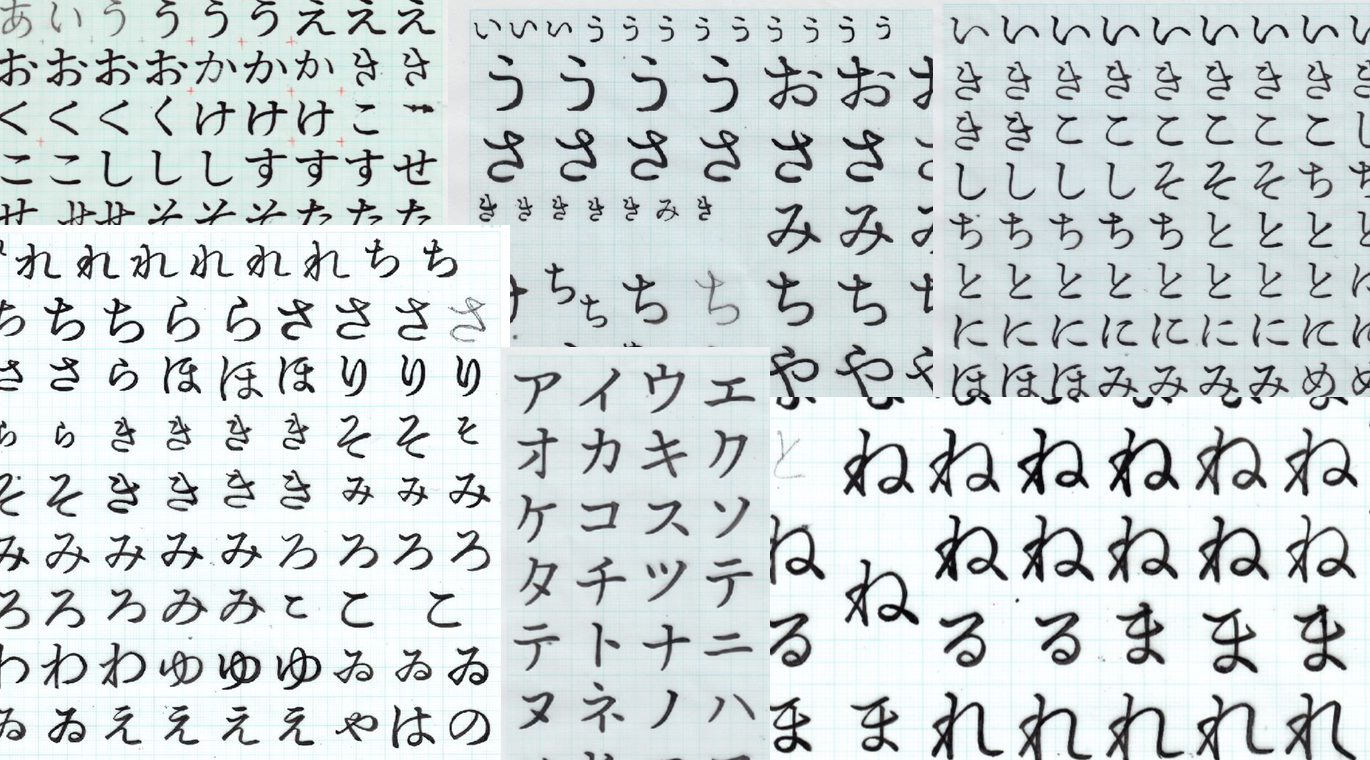 あいうううう ええ え
おおおおかかかきき
くくくくけけけこ
ここしししすすすせ
せせせそそそたたた
いいいうううううううう
うううううおお
ささささささ
きききききみき
みみ
ちちちちちち
やや
いいいいいいいい
きききききききき
ききこここここ
ししししそそそち
ちちちちちととと
とととととととと
にににににににに
ほほほみみみみめ
れれれれれれちち
ちちちららさささ さ
ささらほほほりりり
ららききききそそそ
そそききききみみみ
みみみみみろろろろ
ろろろみみここ こ
わわわゆゆゆゐゐゐ
ゐゐええええやはの
アイウエ
オカキク
ケコスソ
タチツテ
テトナニ
ヌネノハ
と ねねねねねね
ね ねねねねね
ね
る るるままま
ままれれれれれ